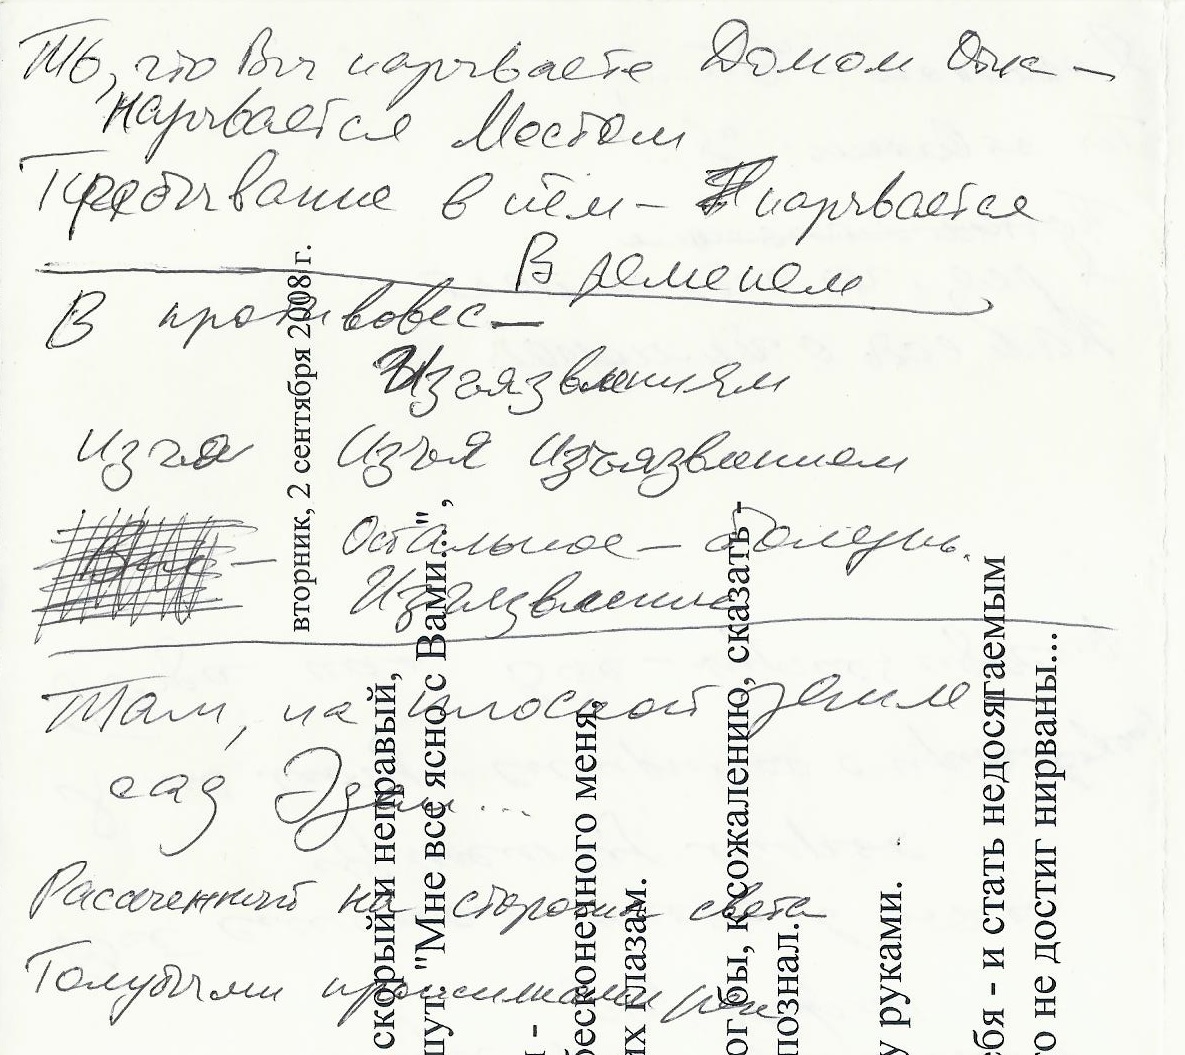 То, что Вы называете Домом
называется Мостом
Пребывание в нём – называется
Временем
В противовес –
Изъязвлениям
Изъя Изъязвлением
Остальное – болезнь.
Изъязвление
Там, на плоской земле –
сад Эдем...
Рассеченный на стороны света
Голубыми прожилками рек
вторник, 2 сентября 2008 г.
скорый и неправый,
шут: "Мне все ясно с Вами...",
бесконечного меня,
их глазам.
ог бы, к сожалению, сказать -
познал.
у руками.
ебя - и стать недосягаемым
о не достиг нирваны...